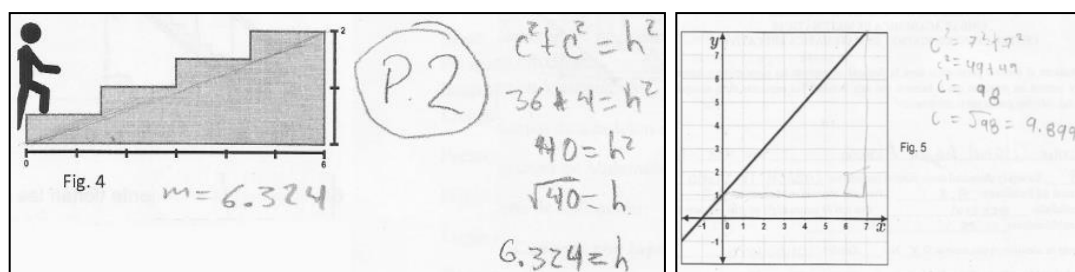 2
0
6
Fig. 4
m = 6.324
P.2
c² + c² = h²
36 + 4 = h²
40 = h²
√40 = h
6.324 = h
y
7
6
5
4
3
2
1
-1
-1 0 1 2 3 4 5 6 7
x
Fig. 5
c² = 7² + 7²
c² = 49 + 49
c² = 98
c = √98 = 9.899